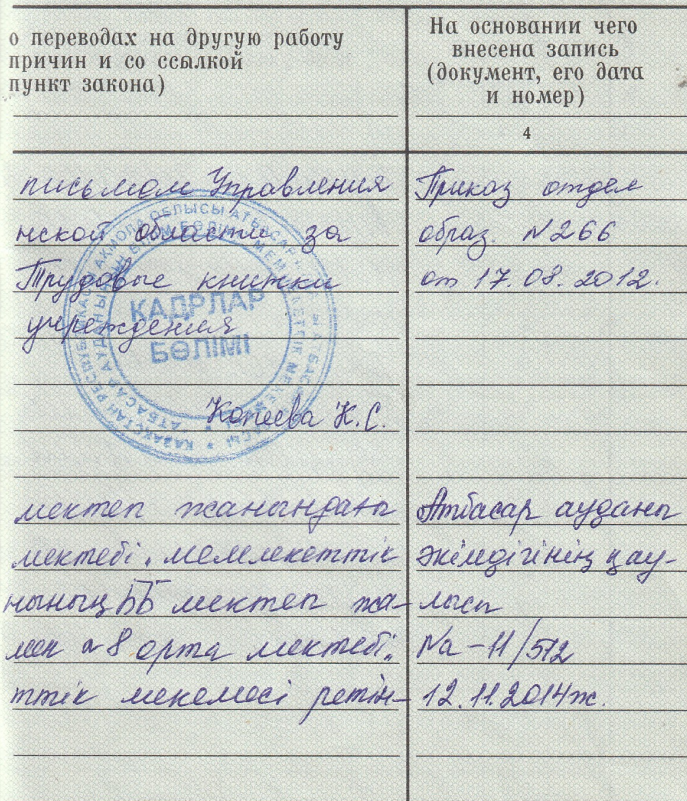 о переводах на другую работу
причин и со ссылкой
пункт закона)
На основании чего
внесена запись
(документ, его дата
и номер)
4
письмом Управления
нской области за
Трудовые книжки
учреждения
Копеева К.С.
Приказ отдел
образ. N266
от 17.08.2012.
КАДРЛАР
БӨЛІМІ
мектеп жанындағы
мектебі" мемлекеттік
ның ББ мектеп жа-
мен №8 орта мектебі"
ттік мекемесі ретін-
Атбасар ауданы
әкімдігінің қау-
лысы
№а-11/512
12.11.2014ж.